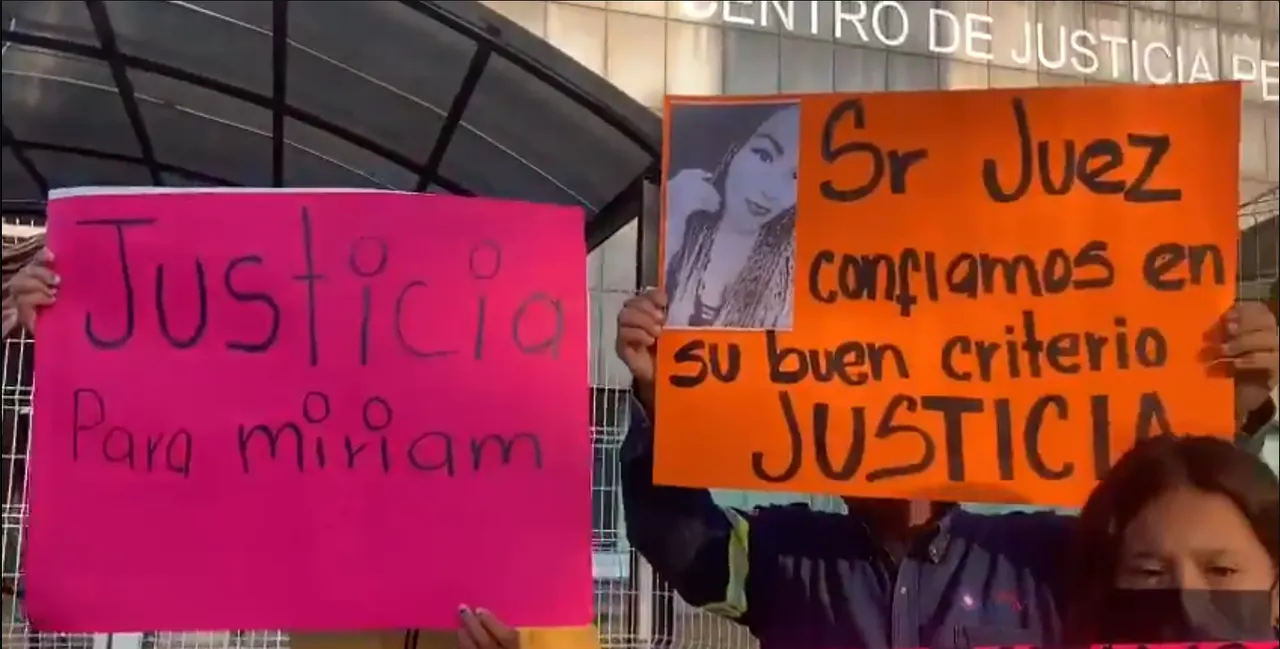 CENTRO DE JUSTICIA PE
Justicia
Para miriam
Sr Juez
confiamos en
su buen criterio
JUSTICIA